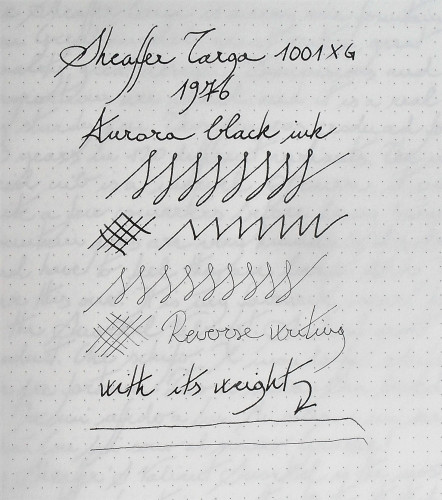 Sheaffer Targa 1001XG
1976
Aurora black ink
Reverse writing
with its weight